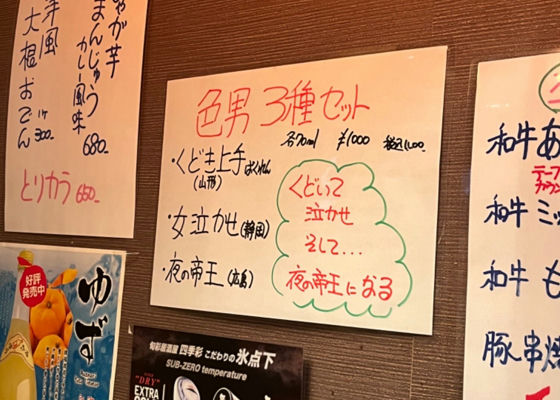 じゃが芋
まんじゅう
カレー風味
680-
洋風
大根おでん
1ヶ
300-
とりカラ 650-
色男 3種セット
各70ml ¥1000 税込1,100-
・くどき上手ばくれん
(山形)
・女泣かせ(静岡)
・夜の帝王(広島)
くどいて
泣かせ
そして...
夜の帝王になる
和牛
和牛
和牛
豚串焼
好評
発売中
ゆず
旬彩居酒屋 四季彩 こだわりの氷点下
SUB-ZERO temperature
"DRY"
EXTRA